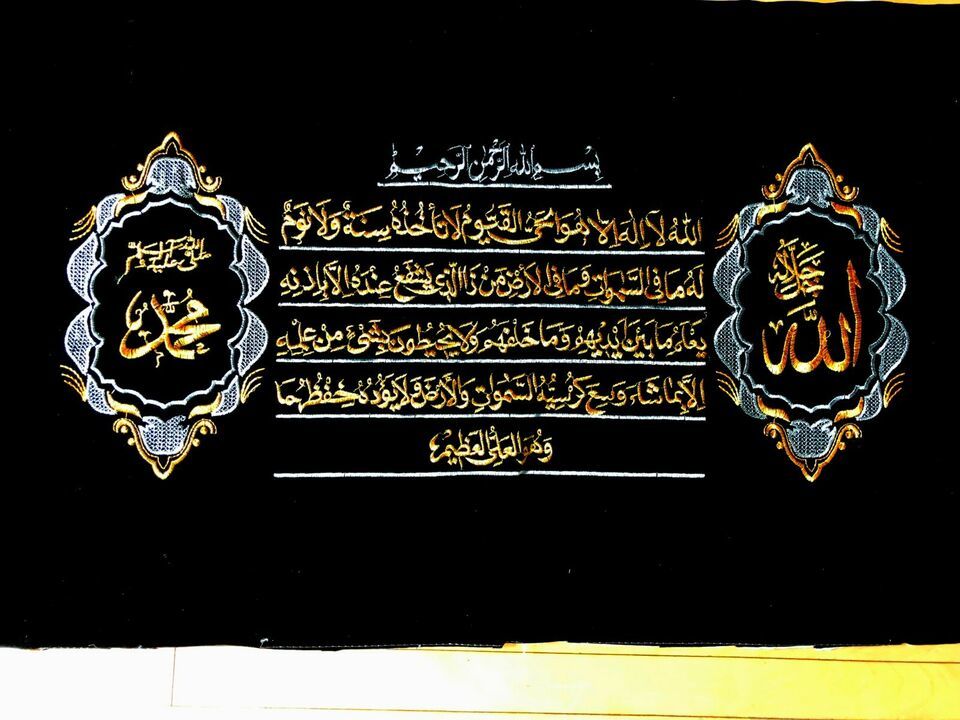 بِسْمِ اللهِ الرَّحْمٰنِ الرَّحِيْمِ
اَللهُ لَا اِلٰهَ اِلَّا هُوَ الْحَيُّ الْقَيُّوْمُ لَا تَأْخُذُهُ سِنَةٌ وَلَا نَوْمٌ
لَهُ مَا فِي السَّمٰوَاتِ وَمَا فِي الْاَرْضِ مَنْ ذَا الَّذِيْ يَشْفَعُ عِنْدَهُ اِلَّا بِاِذْنِهِ
يَعْلَمُ مَا بَيْنَ اَيْدِيْهِمْ وَمَا خَلْفَهُمْ وَلَا يُحِيْطُوْنَ بِشَيْءٍ مِنْ عِلْمِهِ
اِلَّا بِمَا شَاءَ وَسِعَ كُرْسِيُّهُ السَّمٰوَاتِ وَالْاَرْضَ وَلَا يَؤُدُهُ حِفْظُهُمَا
وَهُوَ الْعَلِيُّ الْعَظِيْمُ
جَلَّ جَلَالُهُ
اللّٰه
صلى الله عليه وسلم
محمد